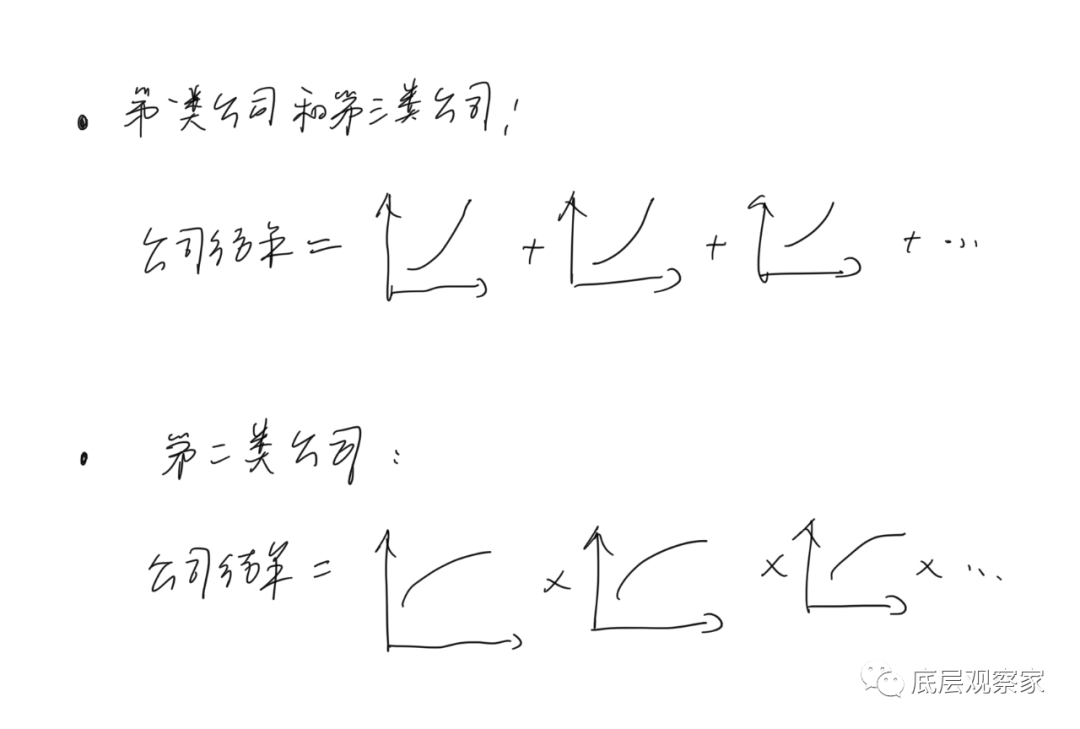 • 第一类公司和第三类公司:
公司结果 = + + + ...
• 第二类公司:
公司结果 = × × × ...
底层观察家